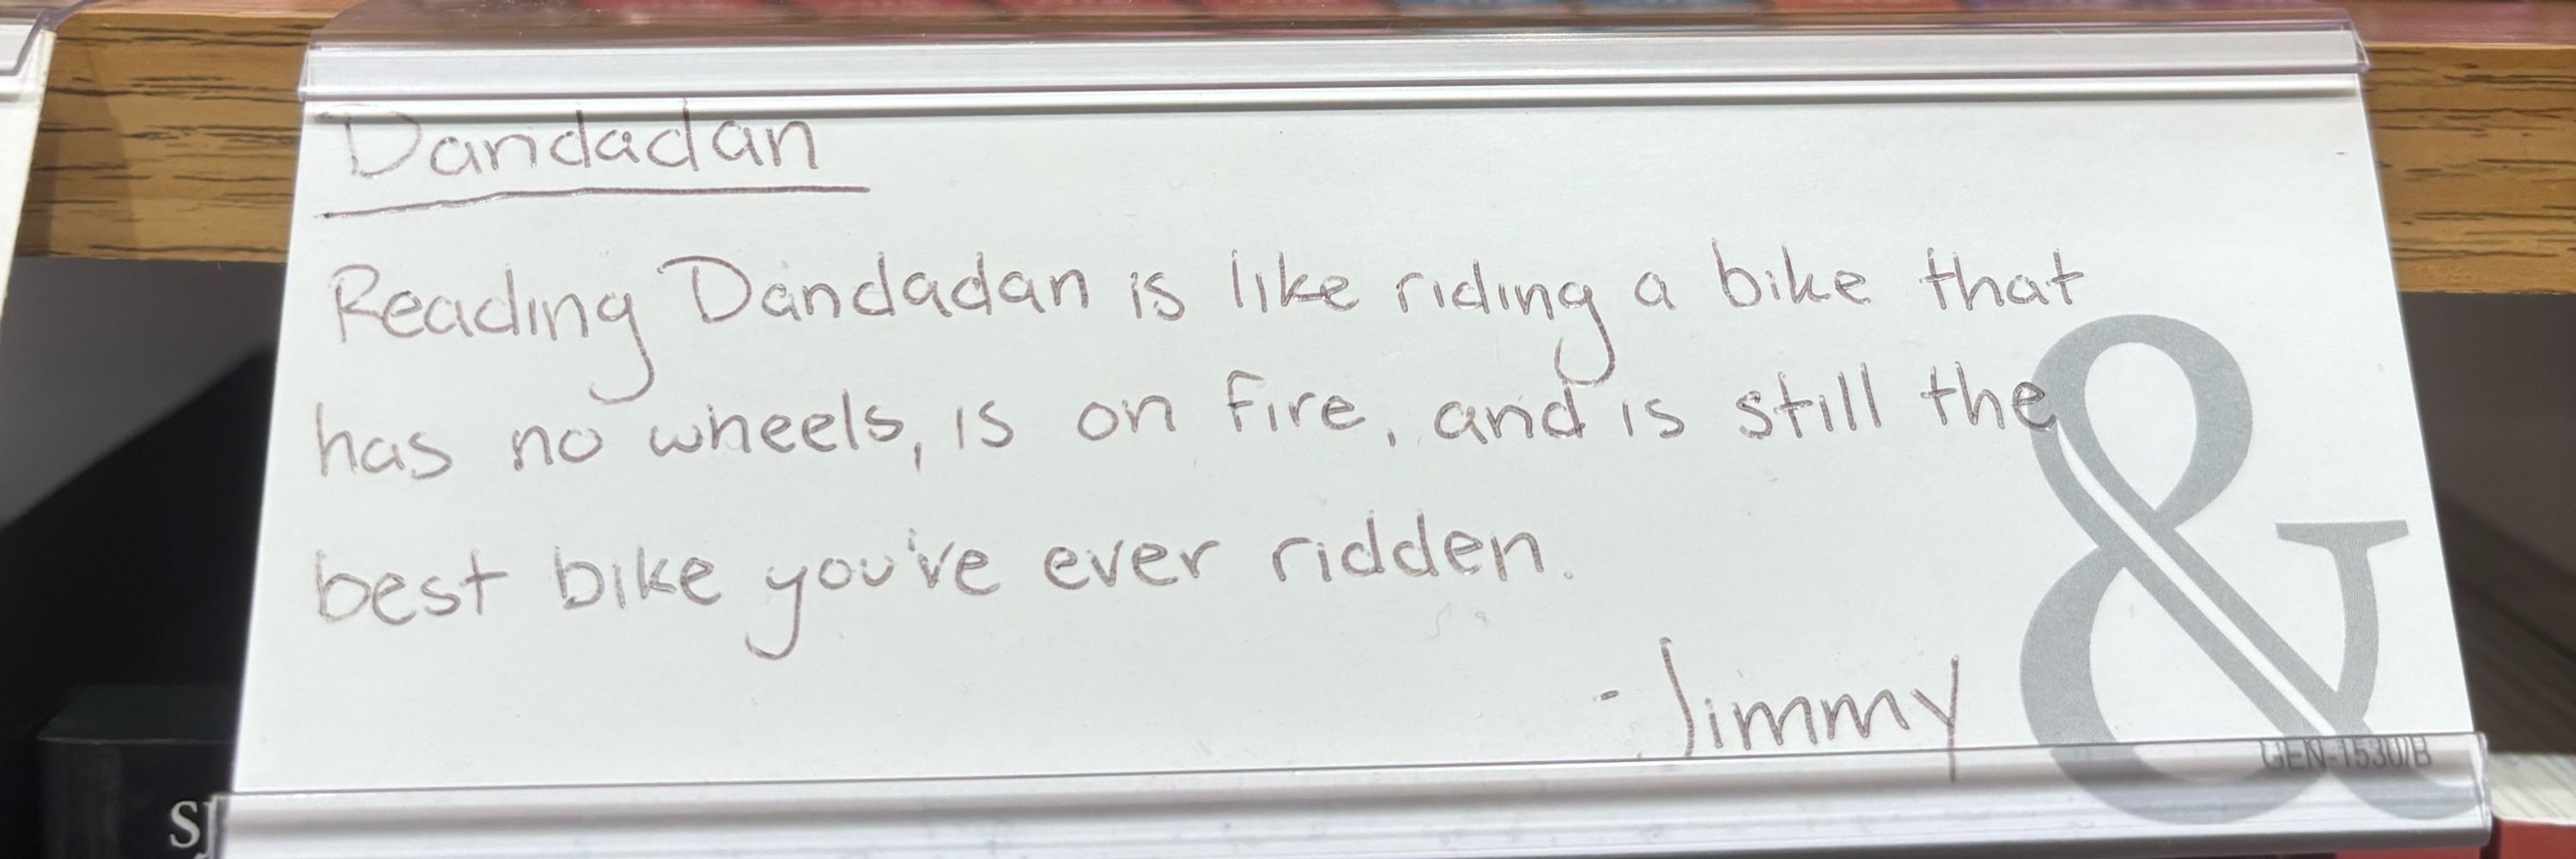 Dandadan
Reading Dandadan is like riding a bike that
has no wheels, is on fire, and is still the
best bike you've ever ridden.
- Jimmy
&
GEN-1530/B